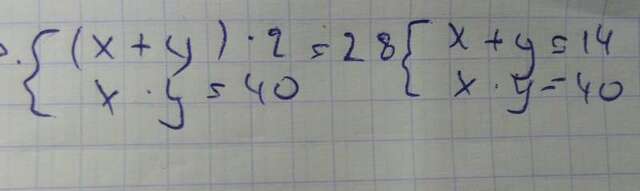 (x + y) · 2 = 28
x · y = 40
x + y = 14
x · y = 40